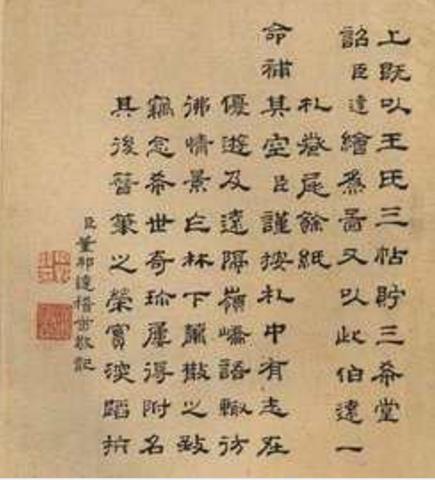 上既以王氏三帖貯三希堂
詔臣達繪爲啚又以此伯遠一
札卷尾餘紙
命補其空臣謹按札中有志在
優遊及遠隔嶺嶠語輒彷
彿情景林下蕭散之致
竊念希世奇珍屢得附名
其後簪筆之榮實深蹈抃
臣董邦達稽首敬記